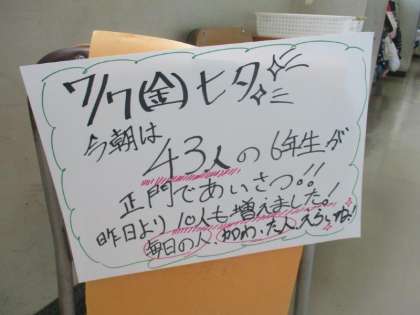 7/7(金)七夕
今朝は
43人の6年生が
正門であいさつ!!
昨日より10人も増えました!
毎日の人、加わった人、えらいね!